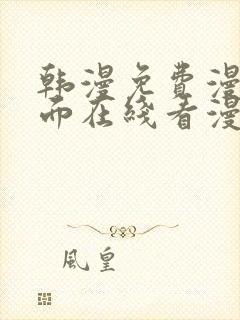 韩漫免费漫
而在线看漫
风皇